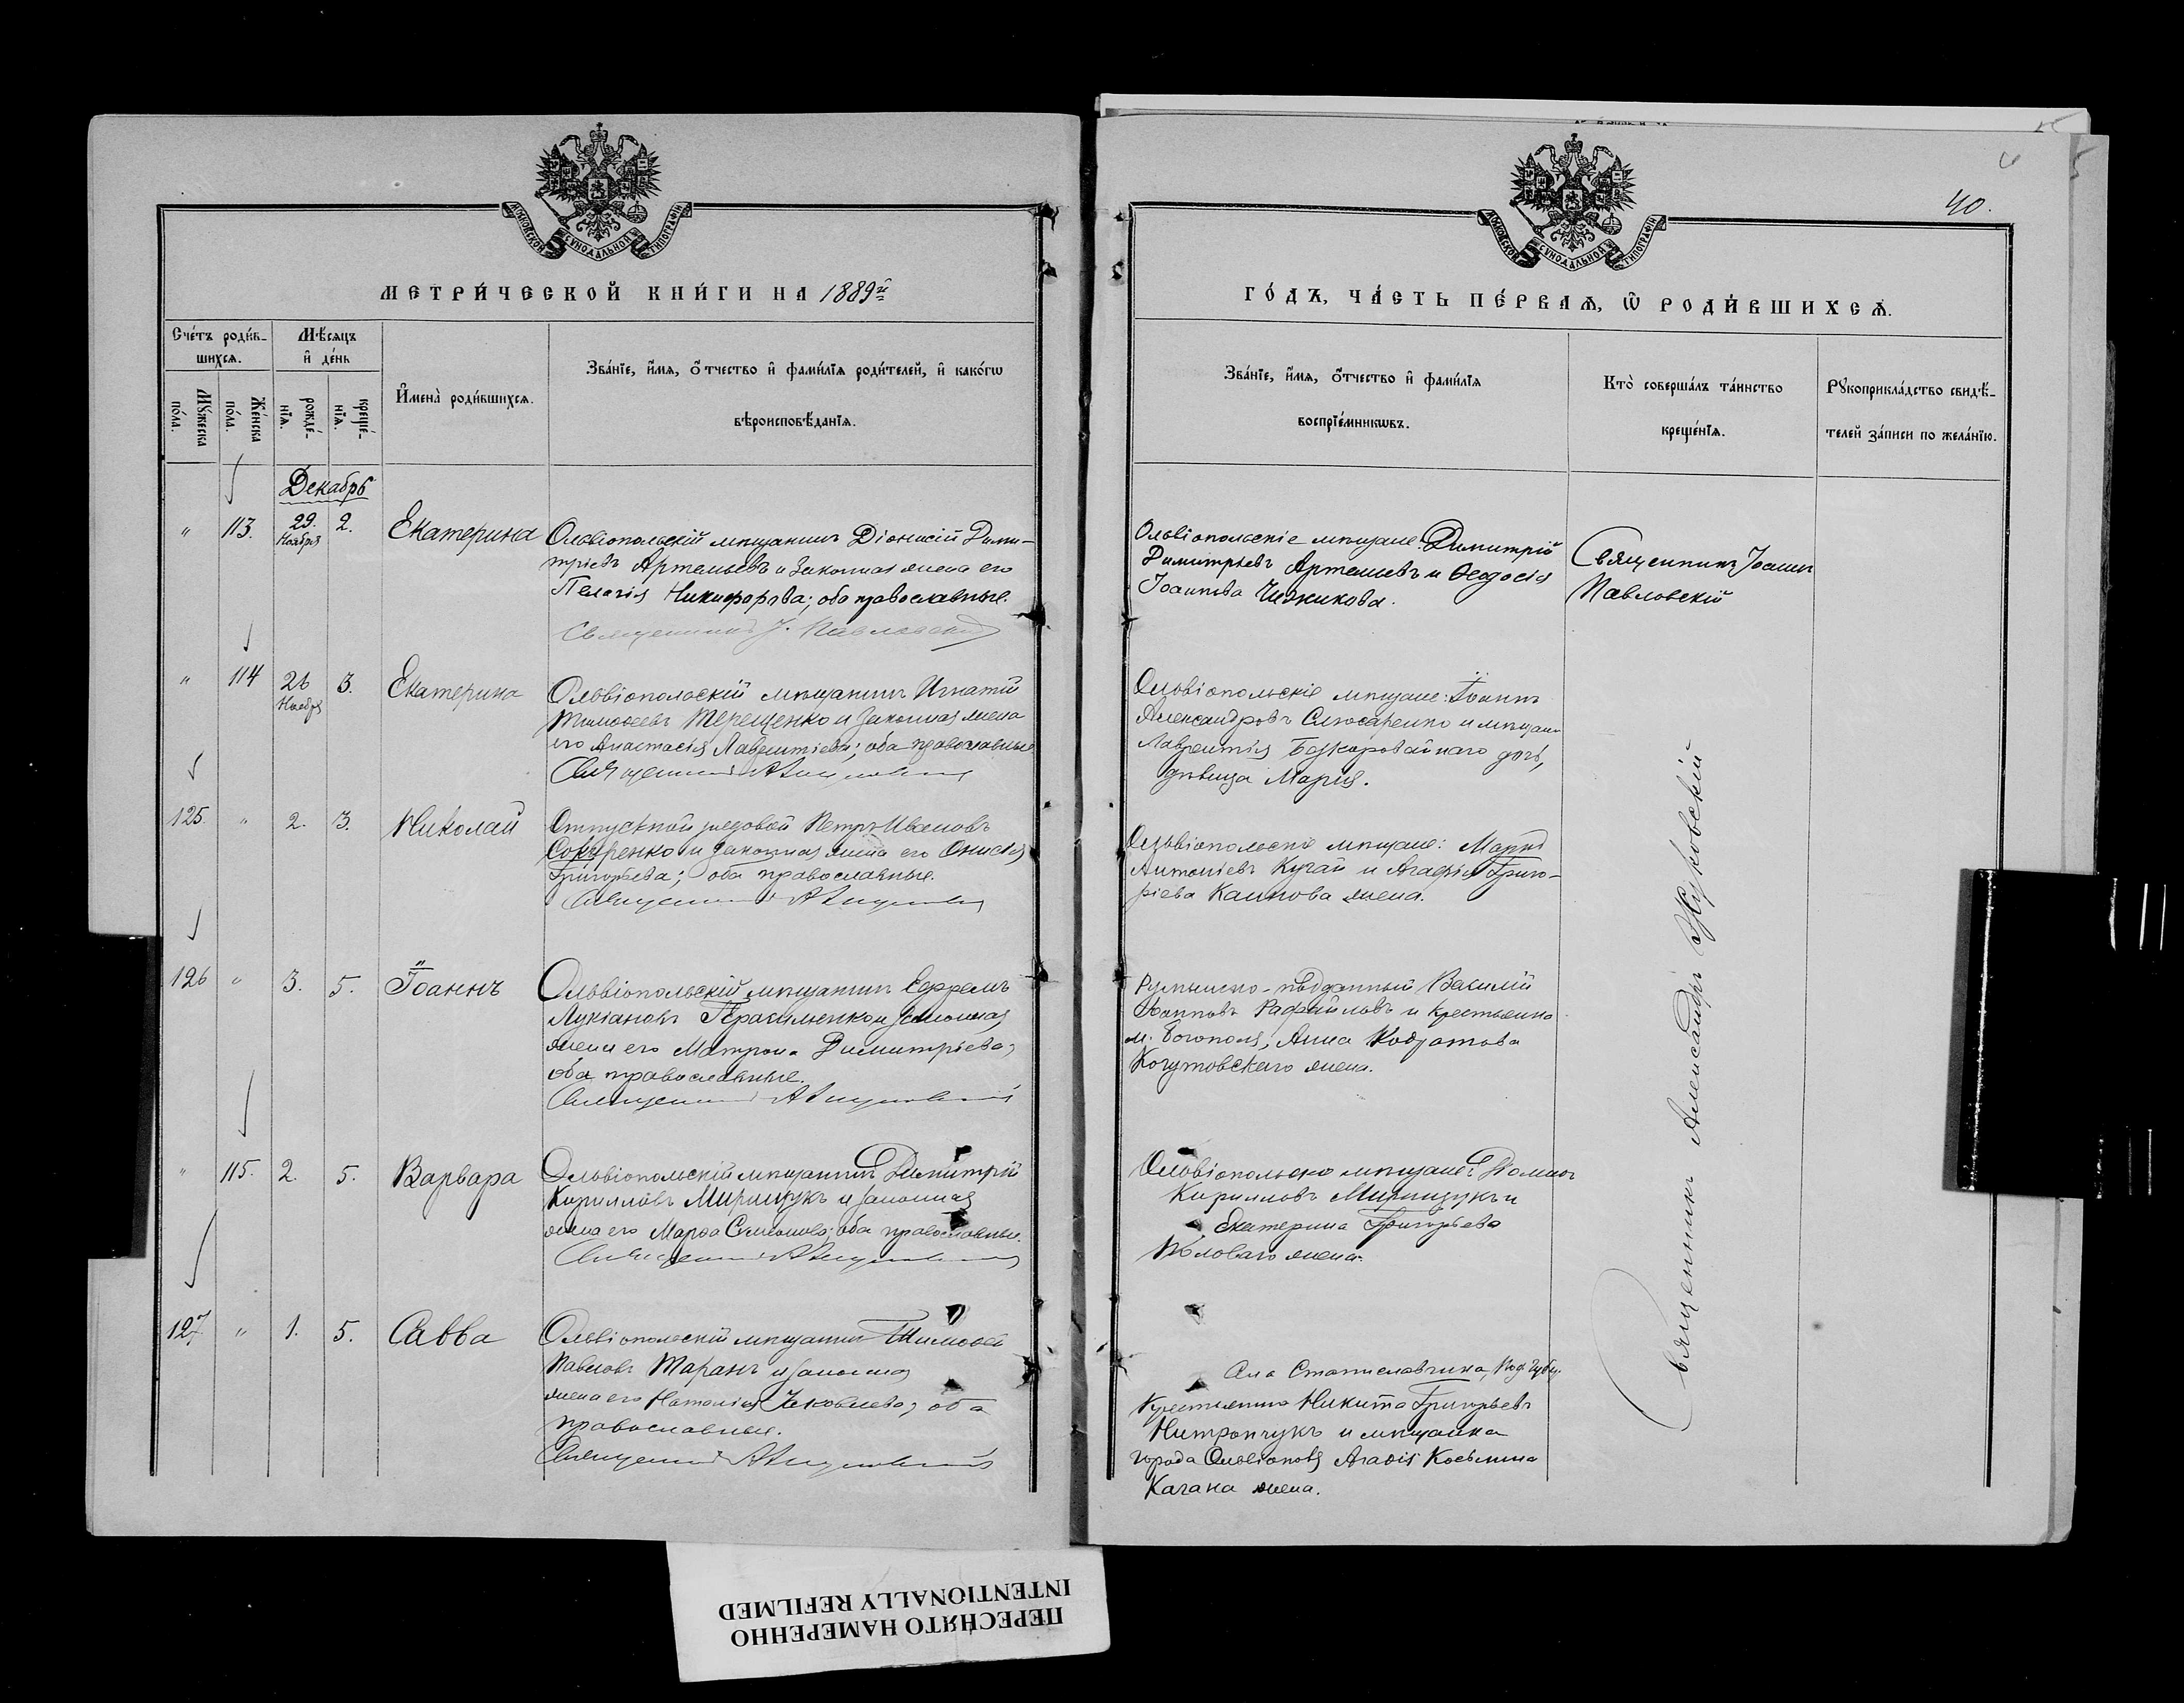 МОСКОВСКОЙ СѴНОДАЛЬНОЙ ТИПОГРАФІИ
МЕТРИ́ЧЕСКОЙ КНИ́ГИ НА 1889й
Сче́тъ роди́в-
шихся.
Мѣ́сяцъ
и҆ де́нь
Мꙋ́жеска
по́ла.
Же́нска
по́ла.
рожде́-
нїя.
креще́-
нїя.
И҆мена̀ роди́вшихся.
Зва́нїе, и҆́мя, ѻ҆́тчество и҆ фами́лїя роди́телей, и҆ како́гѡ
вѣроисповѣ́данїя.
Декабрь
" 113. 29. Ноября 2. Екатерина
Ольвіопольскій мѣщанинъ Діонисій Дими-
тріевъ Артемьевъ и законная жена его
Пелагія Никифорова; оба православные.
Священникъ І. Павловскій
" 114 26 Ноября 3. Екатерина
Ольвіопольскій мѣщанинъ Игнатій
Тимоѳеевъ Терещенко и законная жена
его Анастасія Лаврентіева; оба православные
Священникъ А Жуковскій
125. " 2. 3. Николай
Отпускной рядовой Петръ Ивановъ
Сокуренко и законная жена его Онисія
Григорьева; оба православные.
Священникъ А Жуковскій
126 " 3. 5. Іоаннъ
Ольвіопольскій мѣщанинъ Ефремъ
Лукіановъ Герасименко и законная
жена его Матрона Димитріева;
оба православные.
Священникъ А Жуковскій
" 115. 2. 5. Варвара
Ольвіопольскій мѣщанинъ Димитрій
Кирилловъ Мирищукъ и законная
жена его Марѳа Симонова; оба православные.
Священникъ А Жуковскій
127 " 1. 5. Савва
Ольвіопольскій мѣщанинъ Тимоѳей
Павловъ Таранъ и законная
жена его Наталія Яковлева; оба
православные.
Священникъ А Жуковскій
40.
МОСКОВСКОЙ СѴНОДАЛЬНОЙ ТИПОГРАФІИ
ГО́ДЪ, ЧА́СТЬ ПЕ́РВАЯ, Ѡ҆ РОДИ́ВШИХСЯ.
Зва́нїе, и҆́мя, ѻ҆́тчество и҆ фами́лїя
воспрїе́мникѡвъ.
Кто̀ соверша́лъ та́инство
креще́нїя.
Рꙋкоприкла́дство свидѣ́-
телей за́писи по жела́нїю.
Ольвіопольскіе мѣщане: Димитрій
Димитріевъ Артемьевъ и Ѳеодосія
Іоаннова Чижикова.
Священникъ Іоаннъ
Павловскій
Ольвіопольскіе мѣщане: Іоаннъ
Александровъ Слюсаренко и мѣщан.
Лаврентія Безкоровайнаго дочь,
дѣвица Марія.
Ольвіопольскіе мѣщане:
Антоніевъ Кучай и Агафія Григо-
ріева Каипова жена.
Румынско-подданный Василій
Іоанновъ Рафаиловъ и крестьянка
м. Богополя, Анна Кодратова
Когутовскаго жена.
Ольвіопольскіе мѣщане:
Кирилловъ Мирищукъ и
Екатерина Григорьева
жена.
Села Станиславчика, Под. губ.
крестьянинъ Никита Григорьевъ
Нитрончукъ и мѣщанка
города Ольвіополя Агаѳія Косьмина
Качана жена.
Священникъ Александръ Жуковскій
ПЕРЕСНЯТО НАМЕРЕННО
INTENTIONALLY REFILMED